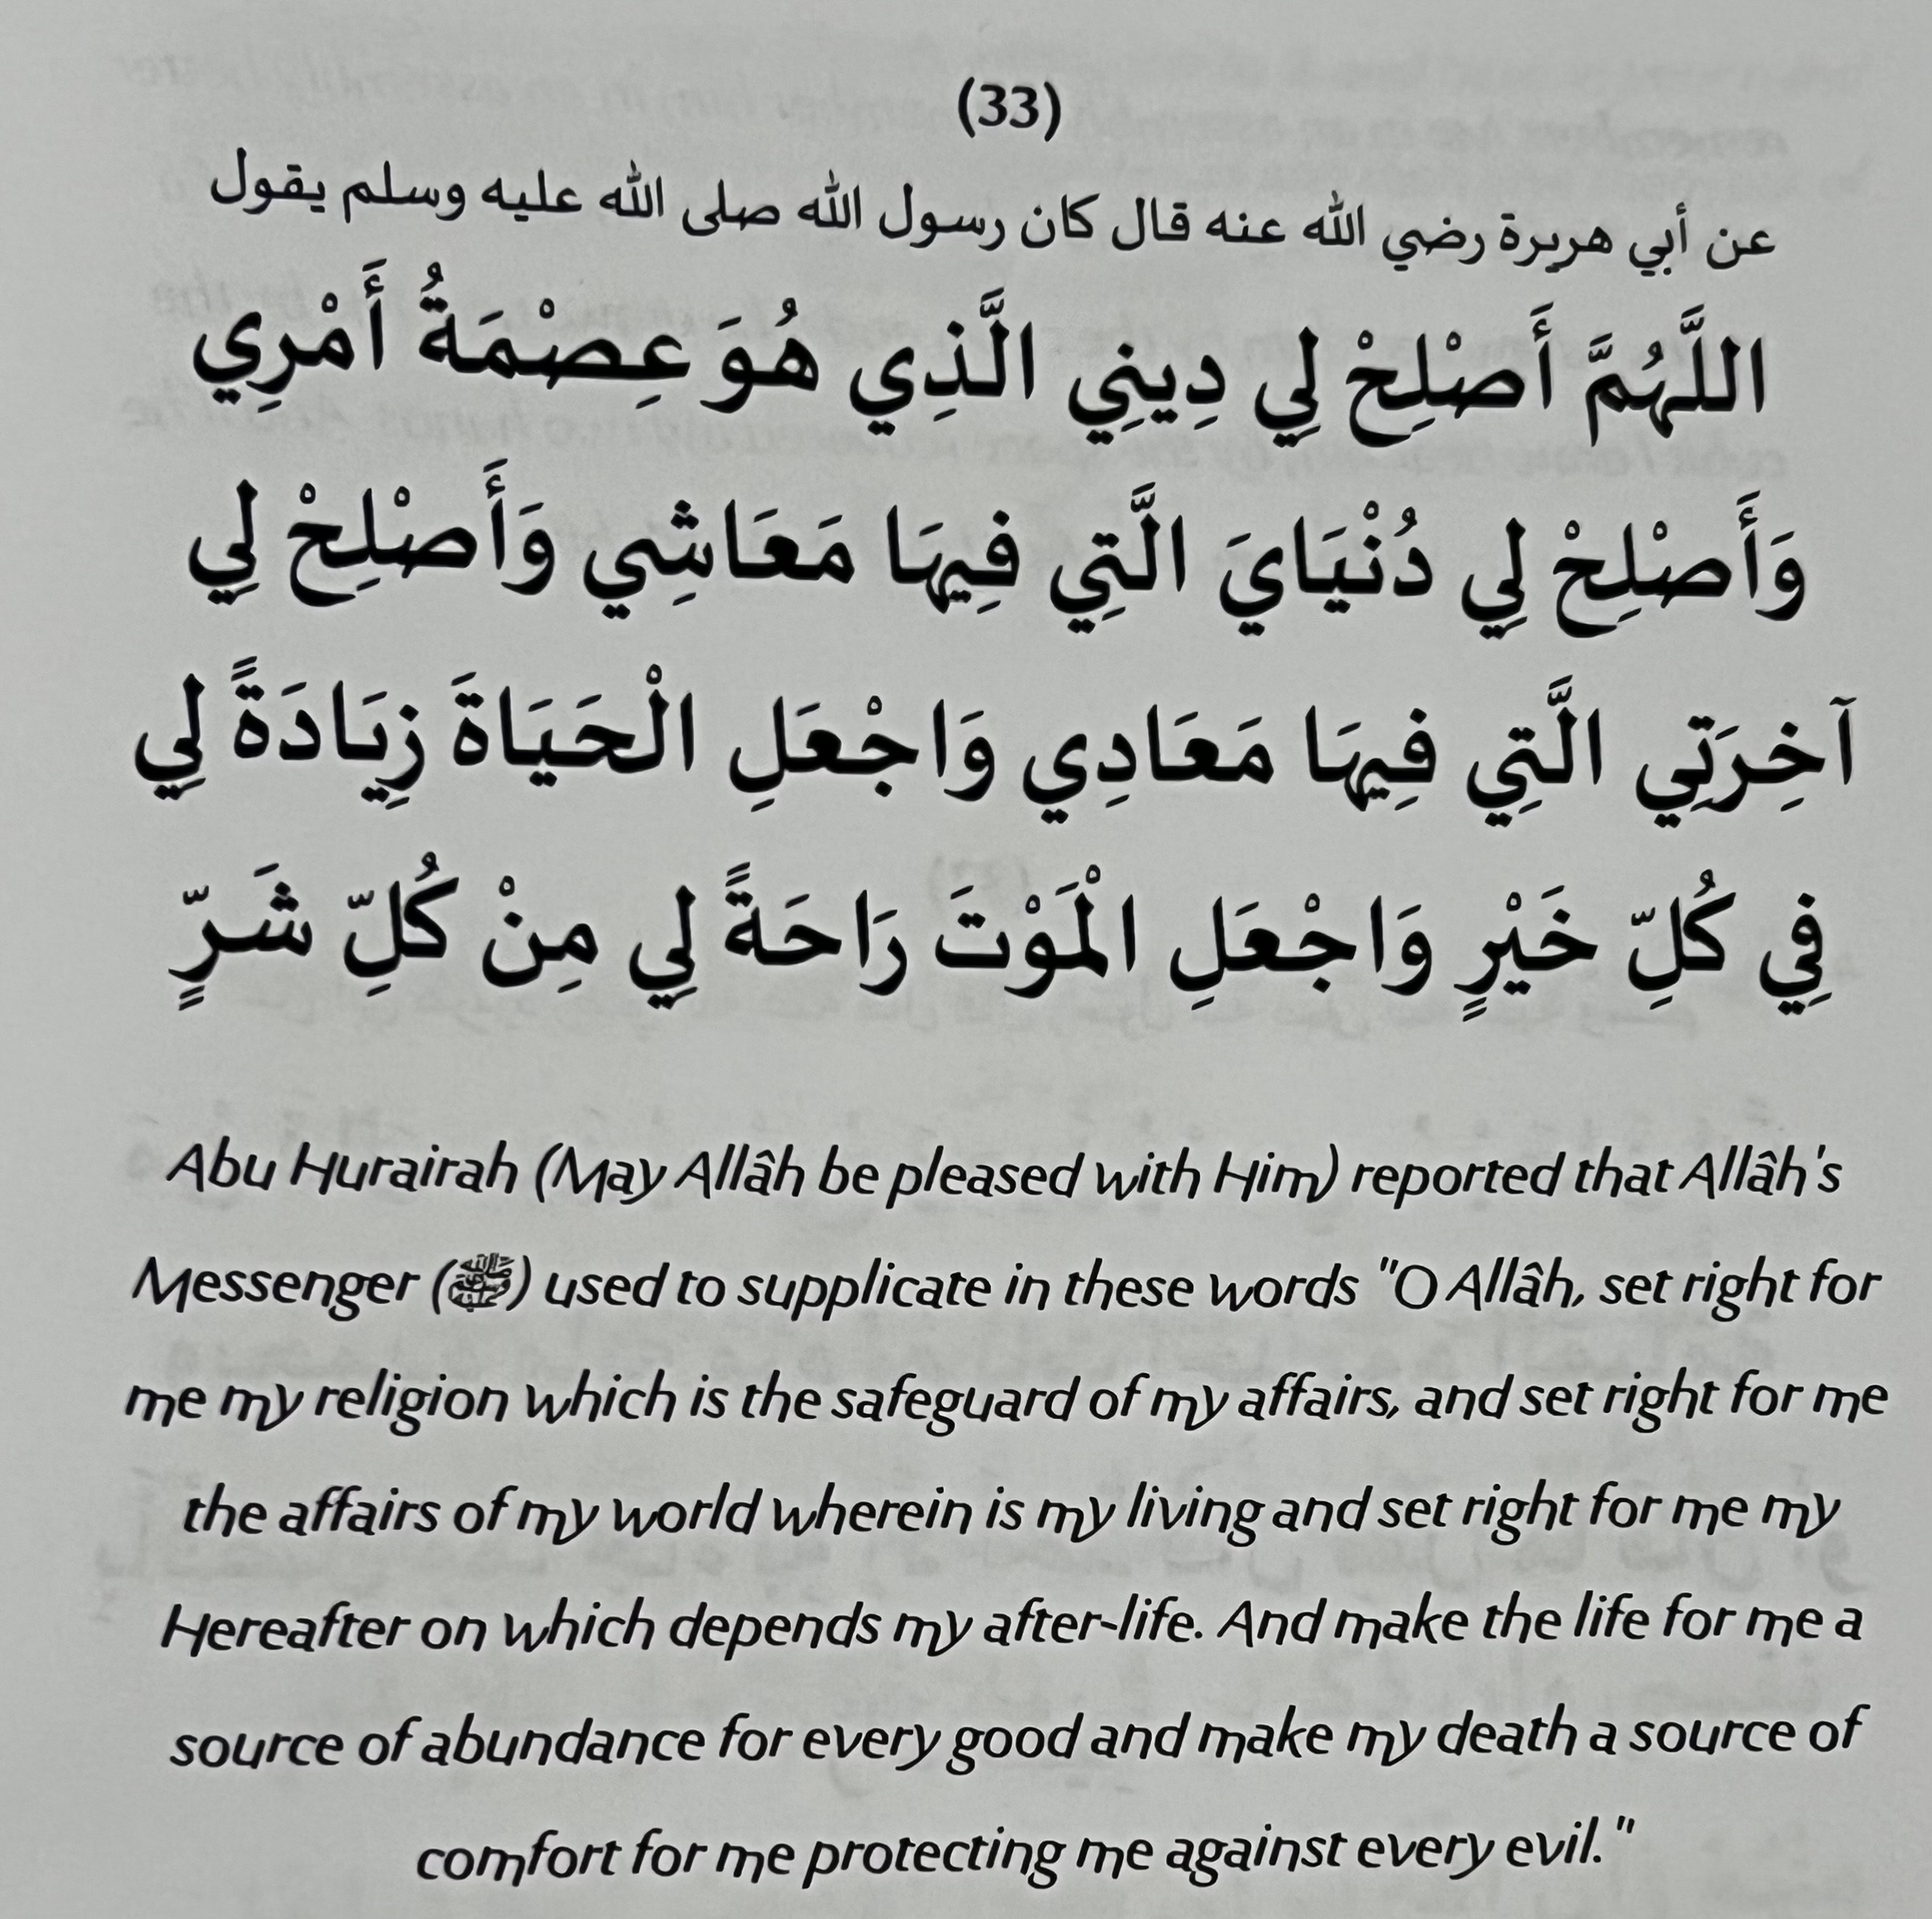 (33)
عن أبي هريرة رضي الله عنه قال كان رسول الله صلى الله عليه وسلم يقول
اللَّهُمَّ أَصْلِحْ لِي دِينِي الَّذِي هُوَ عِصْمَةُ أَمْرِي
وَأَصْلِحْ لِي دُنْيَايَ الَّتِي فِيهَا مَعَاشِي وَأَصْلِحْ لِي
آخِرَتِي الَّتِي فِيهَا مَعَادِي وَاجْعَلِ الْحَيَاةَ زِيَادَةً لِي
فِي كُلِّ خَيْرٍ وَاجْعَلِ الْمَوْتَ رَاحَةً لِي مِنْ كُلِّ شَرٍّ
Abu Hurairah (May Allâh be pleased with Him) reported that Allâh's
Messenger (ﷺ) used to supplicate in these words "O Allâh, set right for
me my religion which is the safeguard of my affairs, and set right for me
the affairs of my world wherein is my living and set right for me my
Hereafter on which depends my after-life. And make the life for me a
source of abundance for every good and make my death a source of
comfort for me protecting me against every evil."